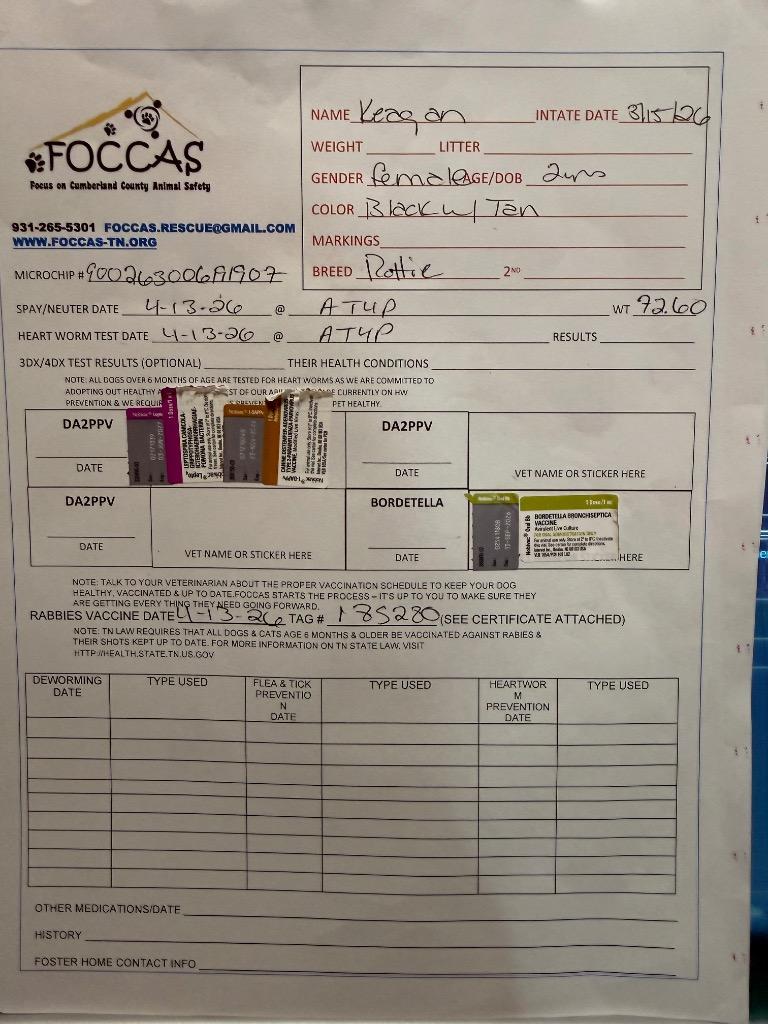 FOCCAS
Focus on Cumberland County Animal Safety
931-265-5301 FOCCAS.RESCUE@GMAIL.COM
WWW.FOCCAS-TN.ORG
NAME Keagan INTATE DATE 3/15/26
WEIGHT LITTER
GENDER female AGE/DOB 2yrs
COLOR Black w/ Tan
MARKINGS
BREED Rottie 2ND
MICROCHIP #
SPAY/NEUTER DATE 4-13-26 @ AT4P WT 72.60
HEART WORM TEST DATE 4-13-26 @ AT4P RESULTS
3DX/4DX TEST RESULTS (OPTIONAL) THEIR HEALTH CONDITIONS
NOTE: ALL DOGS OVER 6 MONTHS OF AGE ARE TESTED FOR HEART WORMS AS WE ARE COMMITTED TO
ADOPTING OUT HEALTHY ST OF OUR CURRENTLY ON HW
PREVENTION & WE PET HEALTHY.
DA2PPV
DATE
DA2PPV
DATE
VET NAME OR STICKER HERE
DA2PPV
DATE
VET NAME OR STICKER HERE
BORDETELLA
DATE
1 Dose/1 mL
BORDETELLA BRONCHISEPTICA
VACCINE
Avirulent Live Culture
FOR ORAL ADMINISTRATION ONLY
HERE
NOTE: TALK TO YOUR VETERINARIAN ABOUT THE PROPER VACCINATION SCHEDULE TO KEEP YOUR DOG
HEALTHY, VACCINATED & UP TO DATE.FOCCAS STARTS THE PROCESS – IT'S UP TO YOU TO MAKE SURE THEY
ARE GETTING EVERY THING THEY NEED GOING FORWARD.
RABBIES VACCINE DATE 4-13-26 TAG # 185280 (SEE CERTIFICATE ATTACHED)
NOTE: TN LAW REQUIRES THAT ALL DOGS & CATS AGE 6 MONTHS & OLDER BE VACCINATED AGAINST RABIES &
THEIR SHOTS KEPT UP TO DATE. FOR MORE INFORMATION ON TN STATE LAW, VISIT
HTTP://HEALTH.STATE.TN.US.GOV
DEWORMING
DATE
TYPE USED
FLEA & TICK
PREVENTIO
N
DATE
TYPE USED
HEARTWOR
M
PREVENTION
DATE
TYPE USED
OTHER MEDICATIONS/DATE
HISTORY
FOSTER HOME CONTACT INFO